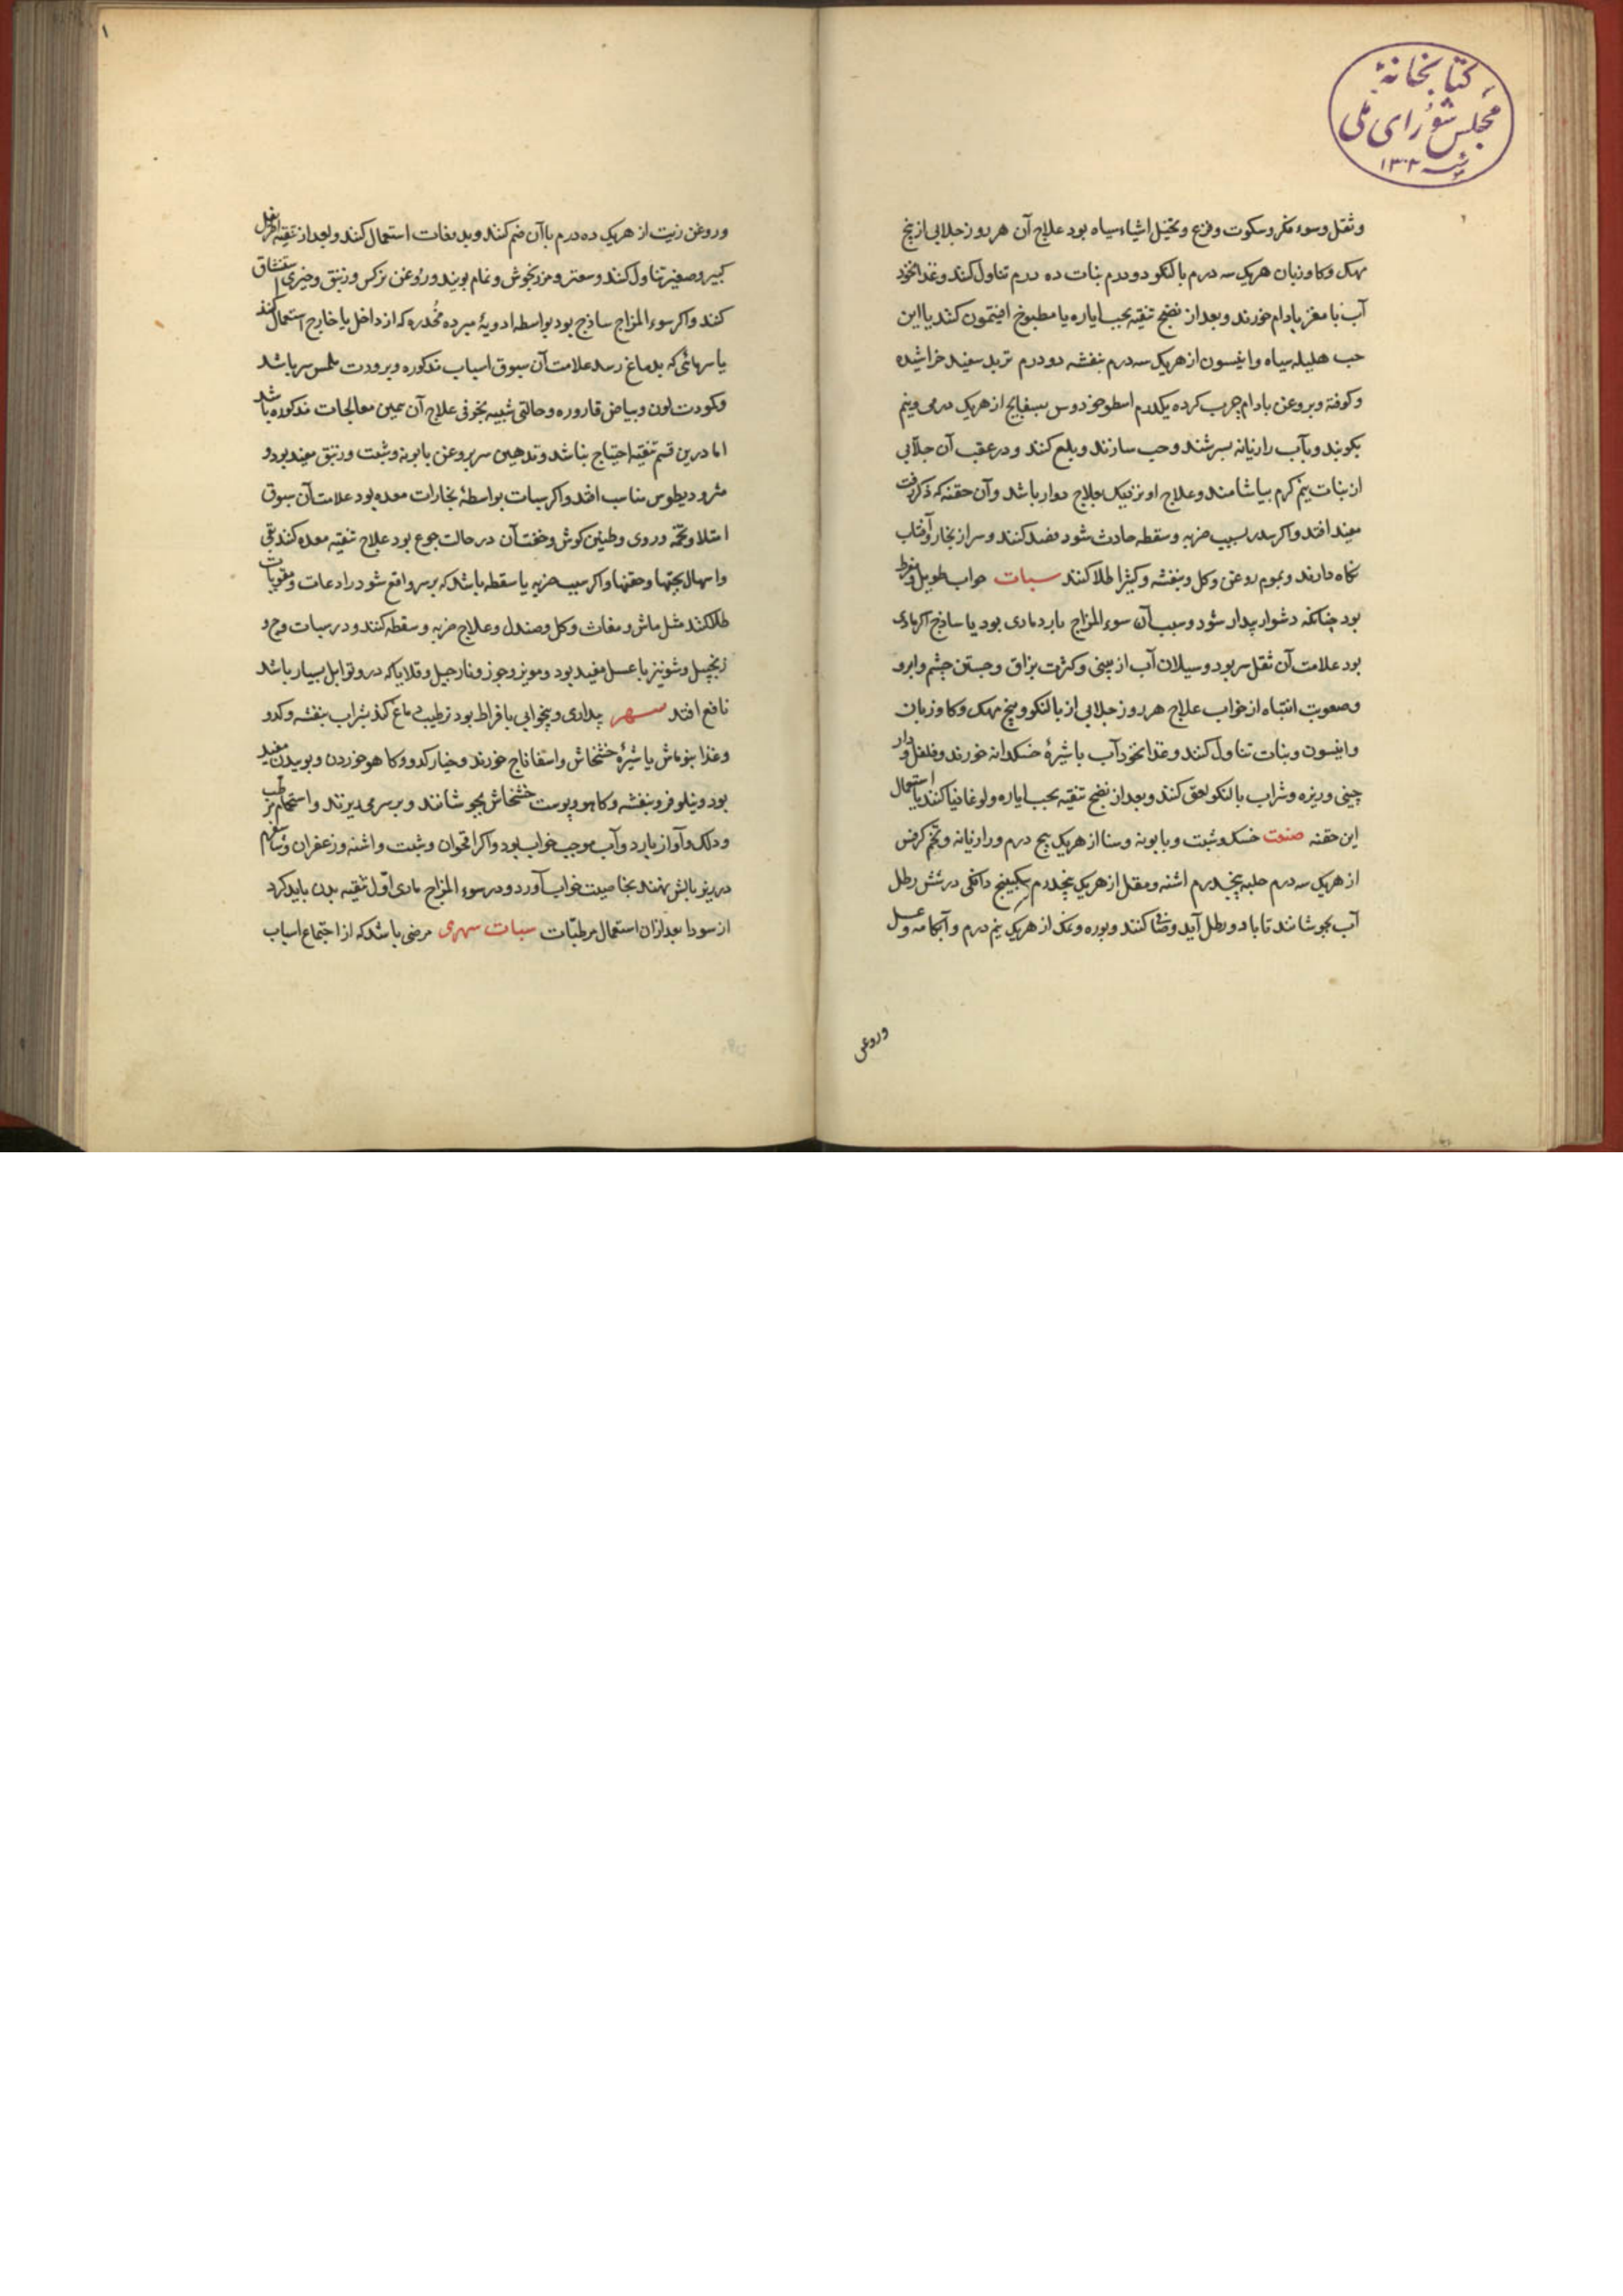 کتابخانهٔ
مجلس شورای ملی
۱۳۰۲
وثقل وسوء فکر وسکوت وفزع وتخیّل اشیاء سیاه بود علاج آن هر روز جلابی از بیخ
مهک وکاوزبان هریک سه درم بالنکو دو درم بنات ده درم تناول کنند وغذا نخود
آب با مغز بادام خورند وبعد از نضج تنقیه بحب ایاره یا مطبوخ افیتمون کنند یا این
حب هلیله سیاه وانیسون از هریک سه درم بنفشه دو درم تربد سفید خراشیده
وکوفته وبروغن بادام چرب کرده یکدرم اسطوخودوس بسفایج از هریک درمی ونیم
بکوبند وبآب رازیانه بسرشند وحب سازند وبلع کنند ودر عقب آن جلّابی
از بنات نیم کرم بیاشامند وعلاج او نزدیک بعلاج دوار باشد وآن حقنه که ذکر رفت
مفید افتد واکر سدر بسبب ضربه وسقطه حادث شود فصد کنند وسر از بخار وآفتاب
نکاه دارند وبموم روغن وکل وبنفشه وکثیرا طلا کنند سبات خواب طویل ومفرط
بود چنانکه دشوار بیدار شود وسبب آن سوء المزاج بارد مادی بود یا ساذج اکر مادی
بود علامت آن ثقل سر بود وسیلان آب از بینی وکثرت بزاق وجستن چشم وابرو
وصعوبت انتباه از خواب علاج هر روز جلابی از بالنکو وبیخ مهک وکاوزبان
وانیسون وبنات تناول کنند وغذا نخود آب با شیرهٔ خسکدانه خورند وفلفل ودار
چینی وزیره وشراب بالنکو لعق کنند وبعد از نضج تنقیه بحب ایاره ولوغاذیا کنند یا استعمال
این حقنه صفت خسک وشبت وبابونه وسنا از هریک پنج درم ورازیانه وتخم کرفس
از هریک سه درم حلبه پنجدرم اشنه ومقل از هریک پنجدرم سکبینج دانکی در شش رطل
آب بجوشانند تا با دو رطل آید وصاف کنند وبوره ونمک از هریک نیم درم وآبکامه وعسل
وروغن
۱
وروغن زیت از هریک ده درم با آن ضم کنند وبدفعات استعمال کنند وبعد از تنقیه اطریفل
کبیر وصغیر تناول کنند وسعتر ومرزنجوش ونمام بویند وروغن نرکس وزنبق وخیری استنشاق
کنند واکر سوء المزاج ساذج بود بواسطه ادویهٔ مبرده مُخدره که از داخل یا خارج استعمال کنند
یا سرمائی که بدماغ رسد علامت آن سبوق اسباب مذکوره وبرودت ملمس سر باشد
وکمودت لون وبیاض قاروره وحالتی شبیه بخوفی علاج آن همین معالجات مذکوره باشد
اما درین قسم تنقیه احتیاج نباشد وتدهین سر بروغن بابونه وشبت وزنبق مفید بود و
مثرودیطوس مناسب افتد واکر سبات بواسطهٔ بخارات معده بود علامت آن سبوق
امتلا وتخمه ودوی وطنین کوش وخفت آن در حالت جوع بود علاج تنقیه معده کنند بقی
واسهال بحبها وحقنها واکر سبب ضربه یا سقطه باشد که بر سر واقع شود رادعات ومقویات
طلا کنند مثل ماش ومغاث وکل وصندل وعلاج ضربه وسقطه کنند ودر سبات وج و
زنجبیل وشونیز با عسل مفید بود ومویز وجوز ونارجیل وقلایا که درو توابل بسیار باشد
نافع افتد سهر بیداری وبیخوابی بافراط بود ترطیب دماغ کنند بشراب بنفشه وکدو
وغذا بنو ماش با شیرهٔ خشخاش واسفاناج خورند وخیار کدو وکاهو خوردن وبوییدن مفید
بود ونیلوفر وبنفشه وکاهو وپوست خشخاش بجوشانند وبر سر می ریزند واستحمام مرطب
ودلک وآواز بارد وآب موجب خواب بود واکر اقحوان وشبت واشنه وزعفران وشاسپرم
در زیر بالش نهند بخاصیت خواب آورد ودر سوء المزاج مادی اوّل تنقیه بدن باید کرد
از سودا بعد ازان استعمال مرطبّات سبات سهری مرضی باشد که از اجتماع اسباب